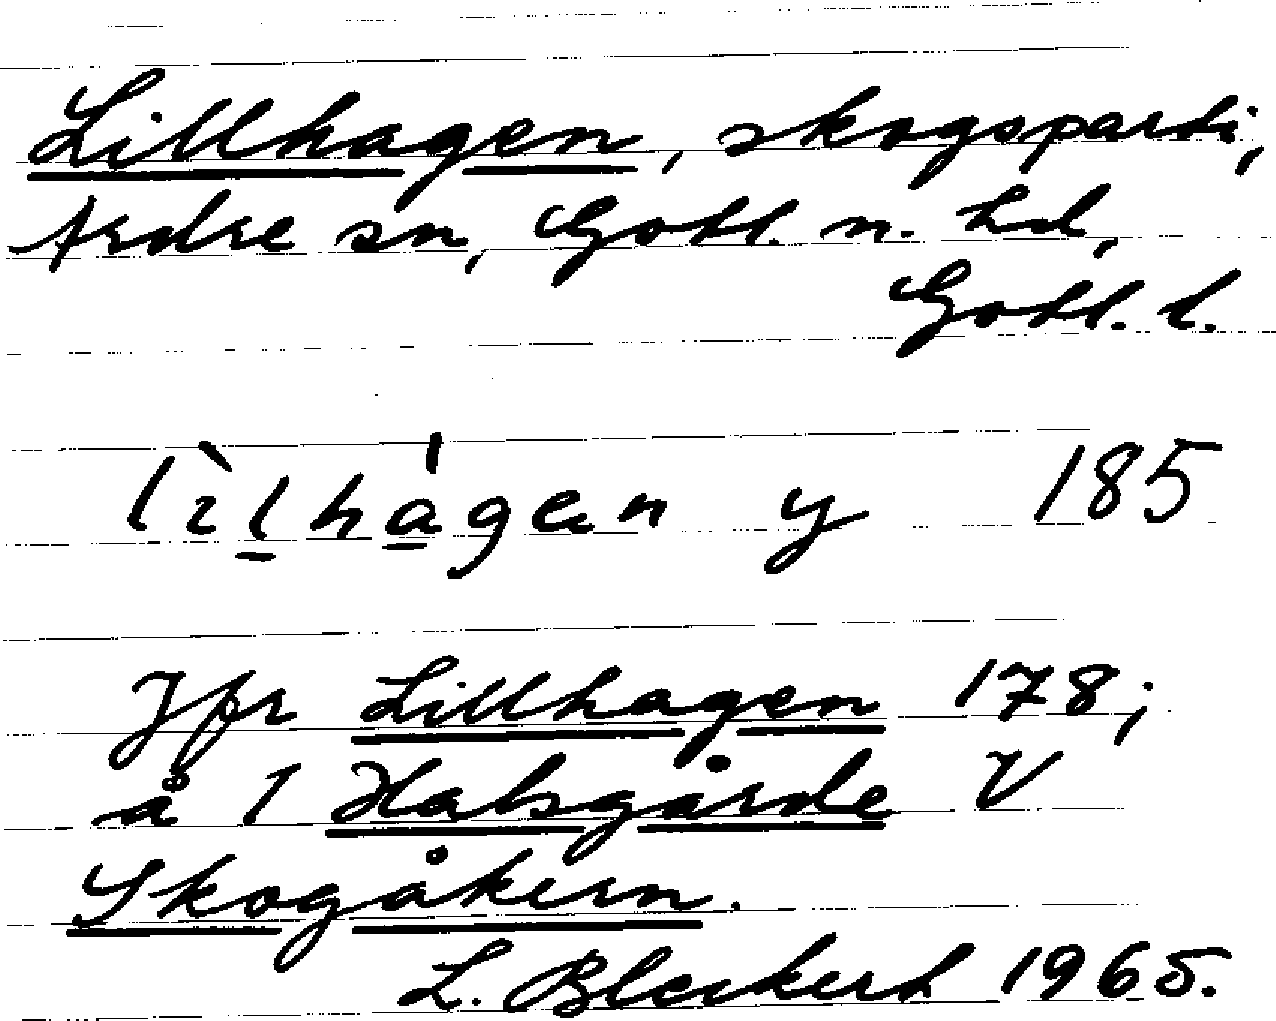 Lillhagen, skogsparti,
Ardre sn, Gotl. n. hd,
Gotl. l.
lìlhágen y 185
Jfr Lillhagen 178;
å 1 Halsgårde V
Skogåkern.
L. Bleckert 1965.